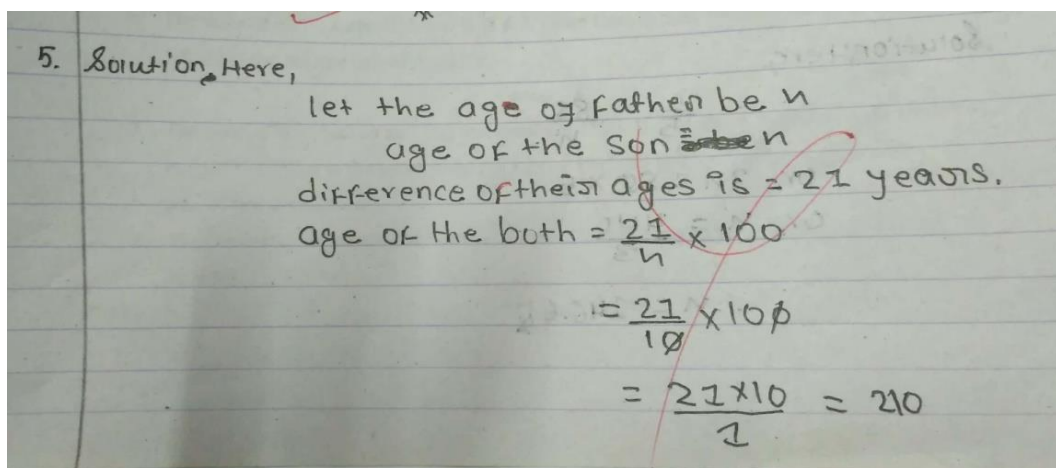 5. Solution, Here,
let the age of Father be n
age of the son = n
difference of their ages is = 21 years.
age of the both = 21/n × 100
= 21/10 × 100
= 21×10/1 = 210